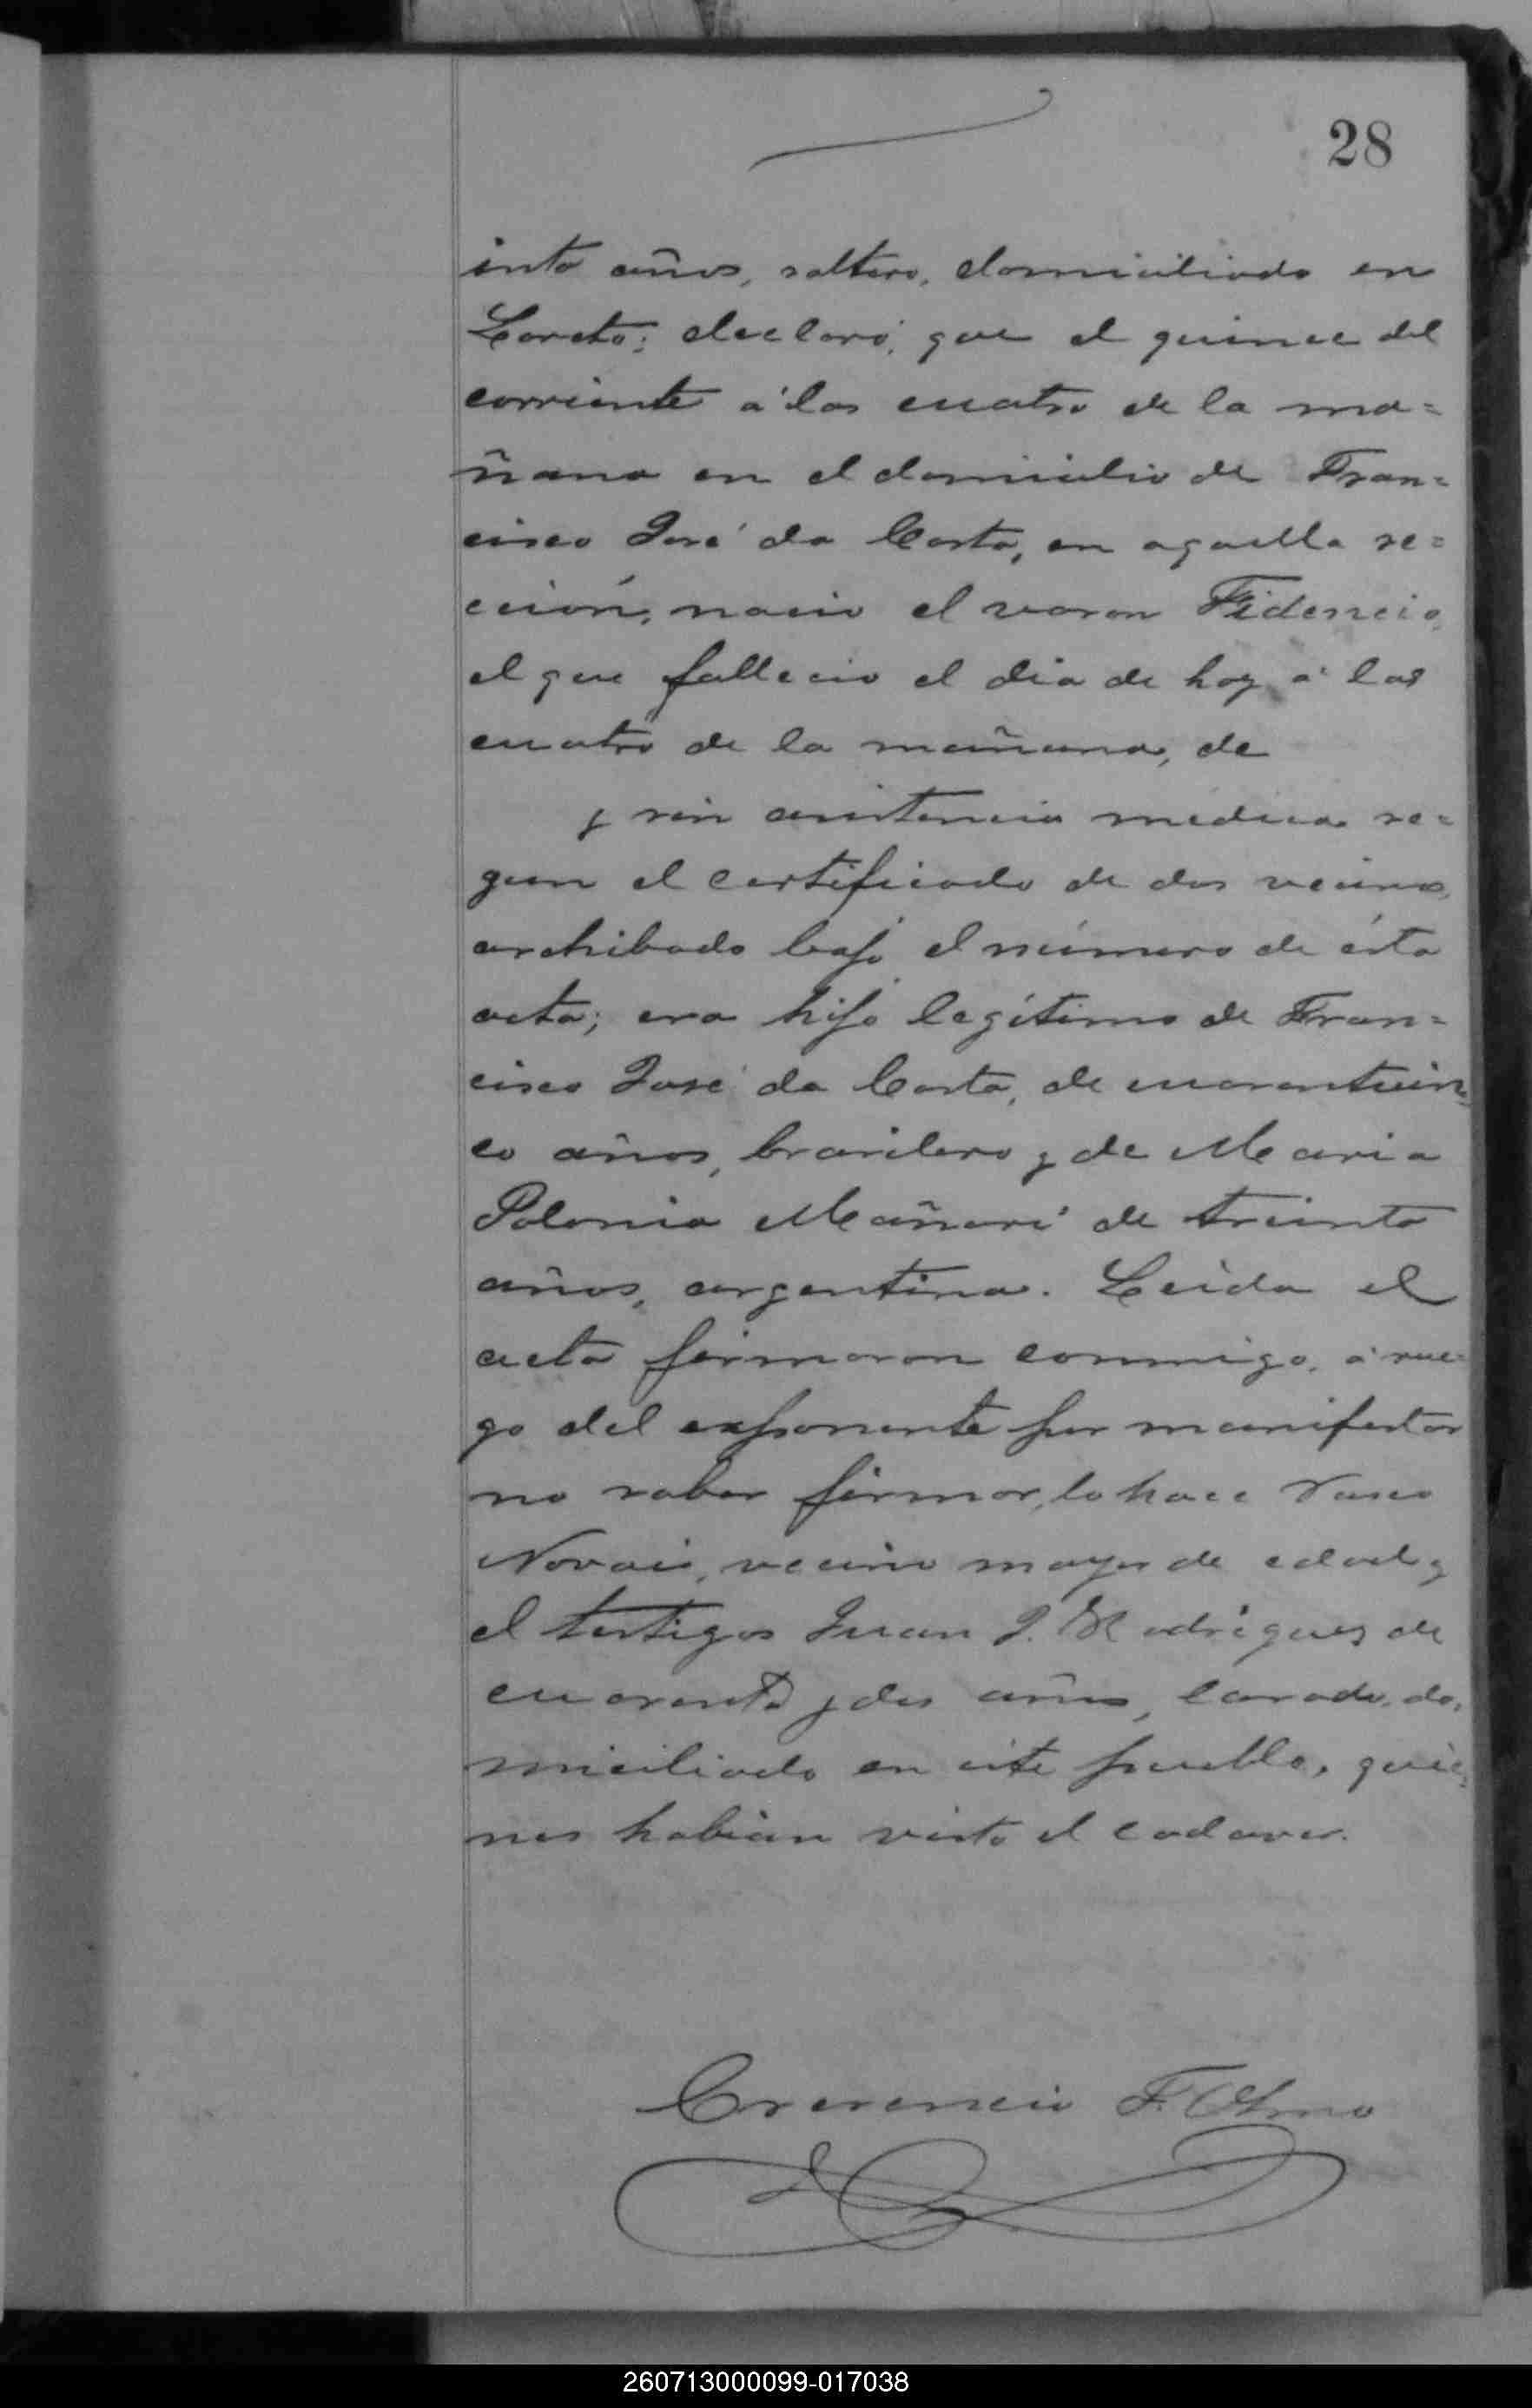 28
inta años, soltero, domiciliado en
Loreto; declaró; que el quince del
corriente á las cuatro de la ma=
ñana en el domicilio de Fran=
cisco José da Costa, en aquella se=
cción, nació el varon Fidencio,
el que fallecio el dia de hoy á las
cuatro de la mañana, de
y sin asistencia médica se=
gun el certificado de dos vecinos,
archibado bajo el número de ésta
acta; era hijo legítimo de Fran=
cisco José da Costa, de cuarenticin=
co años, brasilero y de Maria
Polonia Mañari de treinta
años, argentina. Leida el
acta firmaron conmigo, á rue=
go del exponente por manifestar
no saber firmar, lo hace Vasco
Novais, vecino mayor de edad y
el testigos Juan J. Rodrigues de
cuarenta y dos años, casado, do=
miciliado en éste pueblo, quie=
nes habian visto el cadaver.
Crecencio F. Olmo
260713000099-017038